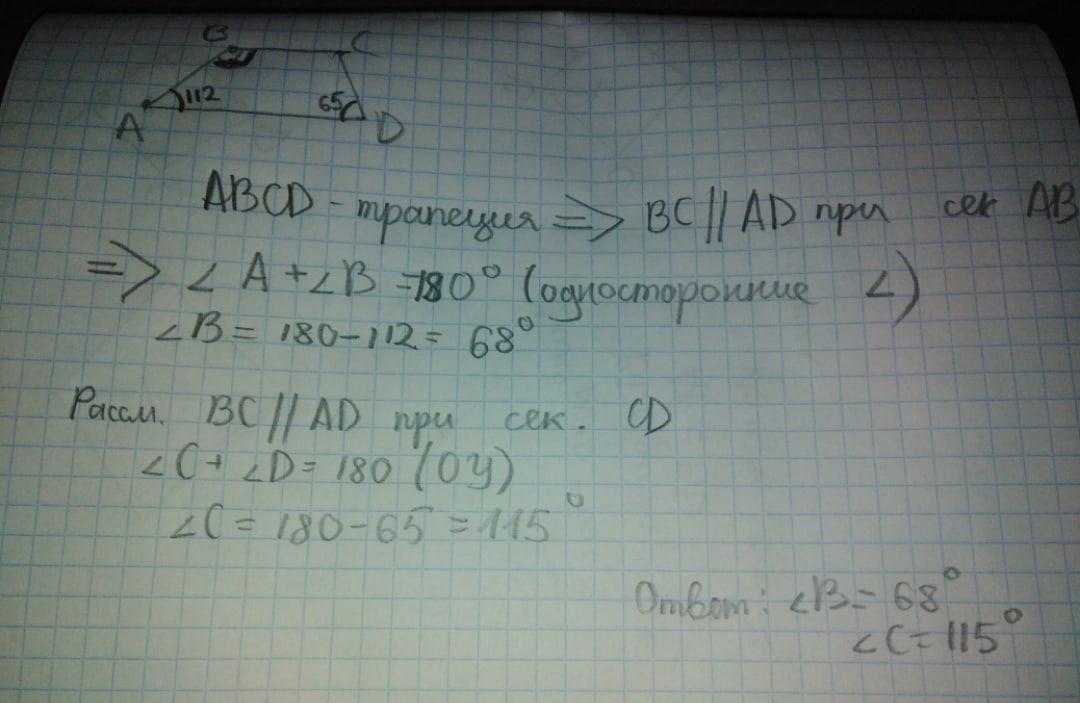 B C
112 65
A D
ABCD - трапеция => BC // AD при сек AB
=> ∠A + ∠B = 180° (односторонние ∠)
∠B = 180 - 112 = 68°
Рассм. BC // AD при сек. CD
∠C + ∠D = 180 (ОУ)
∠C = 180 - 65 = 115°
Ответ: ∠B = 68°
∠C = 115°